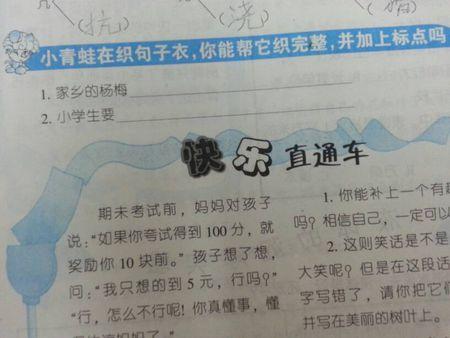 (抗) (浇)
小青蛙在织句子衣,你能帮它织完整,并加上标点吗
1. 家乡的杨梅
2. 小学生要
快乐直通车
期未考试前，妈妈对孩子
说：“如果你夸试得到 100 分，就
奖励你 10 块前。” 孩子想了想，
问：“我只想的到 5 元，行吗？”
“行，怎么不行呢！你真懂事，懂
妈妈了。”
1. 你能补上一个有趣
吗？相信自己，一定可以
2. 这则笑话是不是
大笑呢？但是在这段话
字写错了，请你把它们
并写在美丽的树叶上。